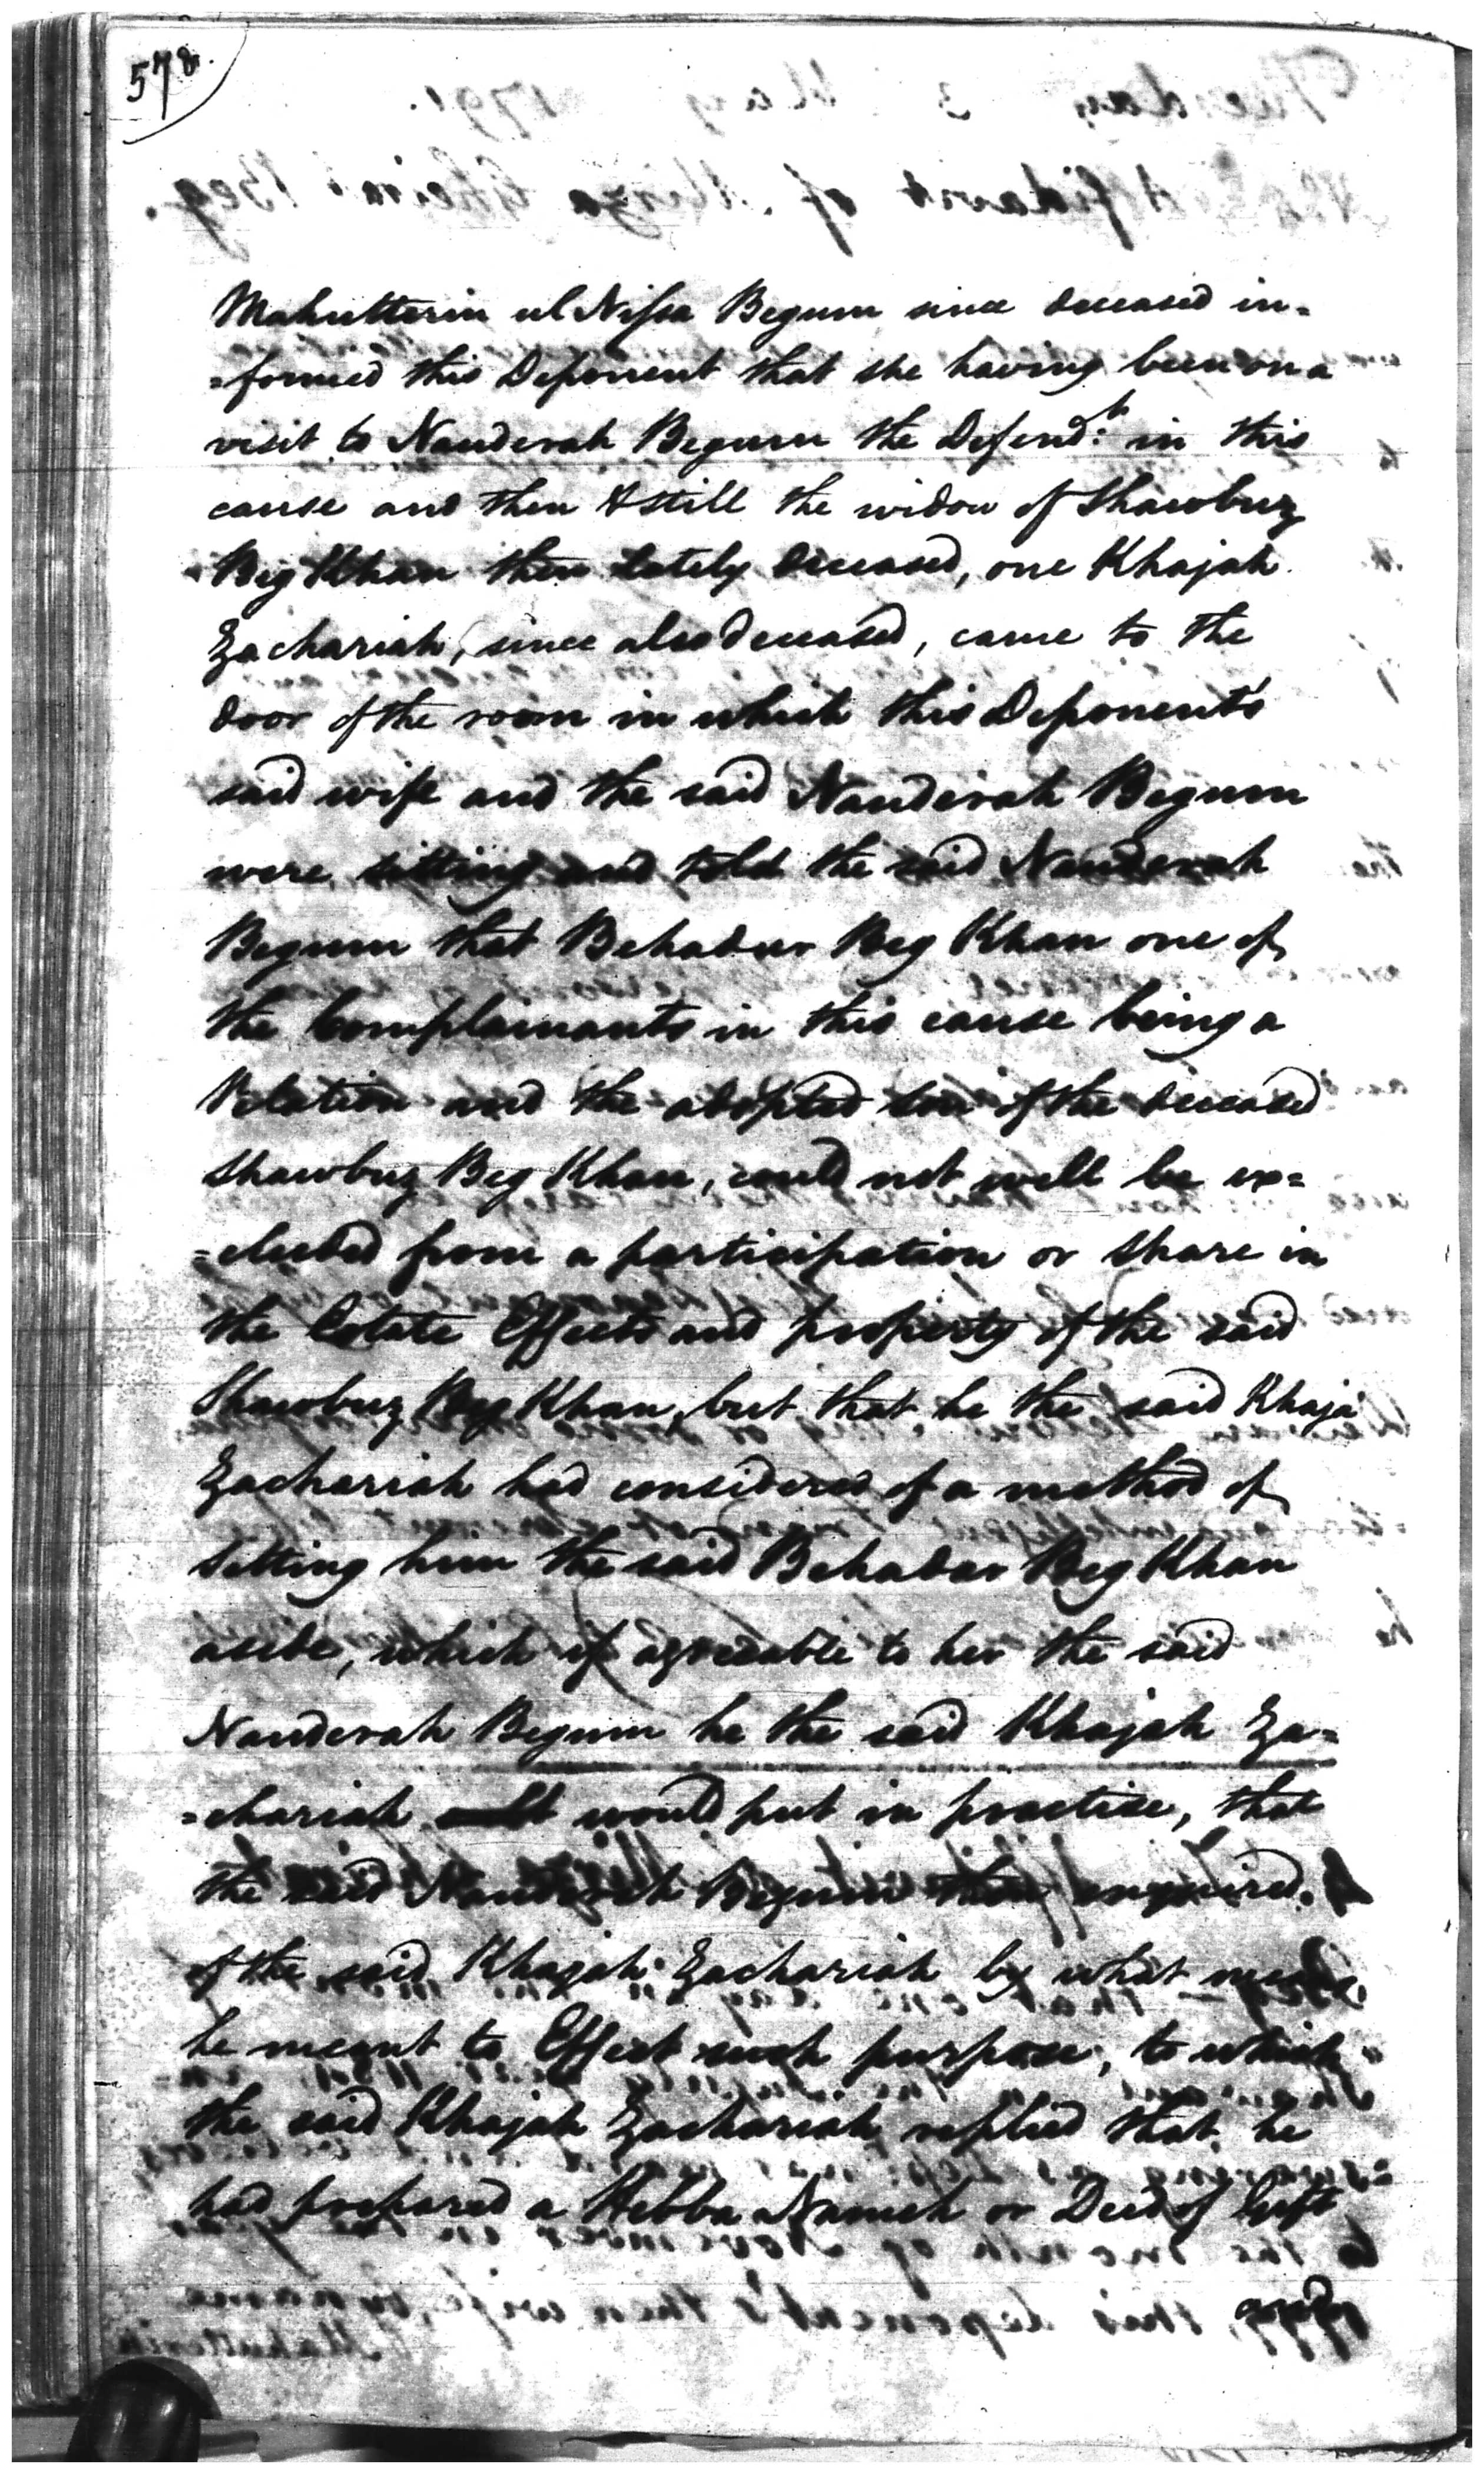 578.
Mahutterim ul Nissa Begum since deceased in=
=formed this Deponent that she having been on a
visit to Nauderah Begum the Defend.t in this
cause and then & still the widow of Shawbuz
Beg Khan then lately deceased, one Khajah
Zachariah, since also deceased, came to the
door of the room in which this Deponent's
said wife and the said Nauderah Begum
were sitting and told the said Nauderah
Begum that Behadur Beg Khan one of
the Complainants in this cause being a
Relation and the adopted son of the deceased
Shawbuz Beg Khan, could not well be ex=
=cluded from a participation or share in
the Estate Effects and property of the said
Shawbuz Beg Khan, but that he the said Khaja
Zachariah had considered of a method of
setting him the said Behadar Beg Khan
aside, which if agreeable to her the said
Nauderah Begum he the said Khajah Za=
=chariah would put in practise, that
the said Nauderah Begum then enquired
of the said Khajah Zachariah by what means
he meant to Effect such purpose, to which
the said Khajah Zachariah replied that he
had prepared a Hebba Nameh or Deed of Gift